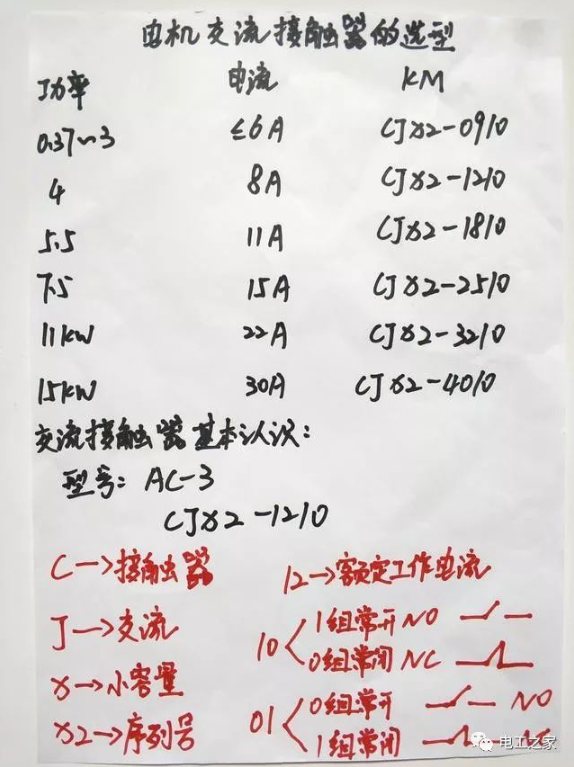 电机交流接触器的选型
功率 电流 KM
0.37~3 ≤6A CJX2-0910
4 8A CJX2-1210
5.5 11A CJX2-1810
7.5 15A CJX2-2510
11kW 22A CJX2-3210
15kW 30A CJX2-4010
交流接触器基本认识:
型号: AC-3
CJX2-1210
C→接触器
12→额定工作电流
J→交流
10 < 1组常开 NO
0组常闭 NC
X→小容量
X2→序列号
01 < 0组常开 NO
1组常闭
电工之家